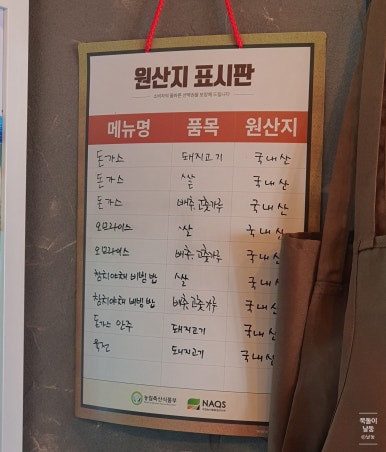 원산지 표시판
메뉴명 품목 원산지
돈가스 돼지고기 국내산
돈가스 쌀 국내산
돈가스 배추,고춧가루 국내산
오므라이스 쌀 국내산
오므라이스 배추,고춧가루 국내산
참치야채 비빔밥 쌀 국내산
참치야채 비빔밥 배추,고춧가루 국내산
돈가스 안주 돼지고기 국내산
육전 돼지고기 국내산
농림축산식품부 NAQS
쭉돌이
날둥